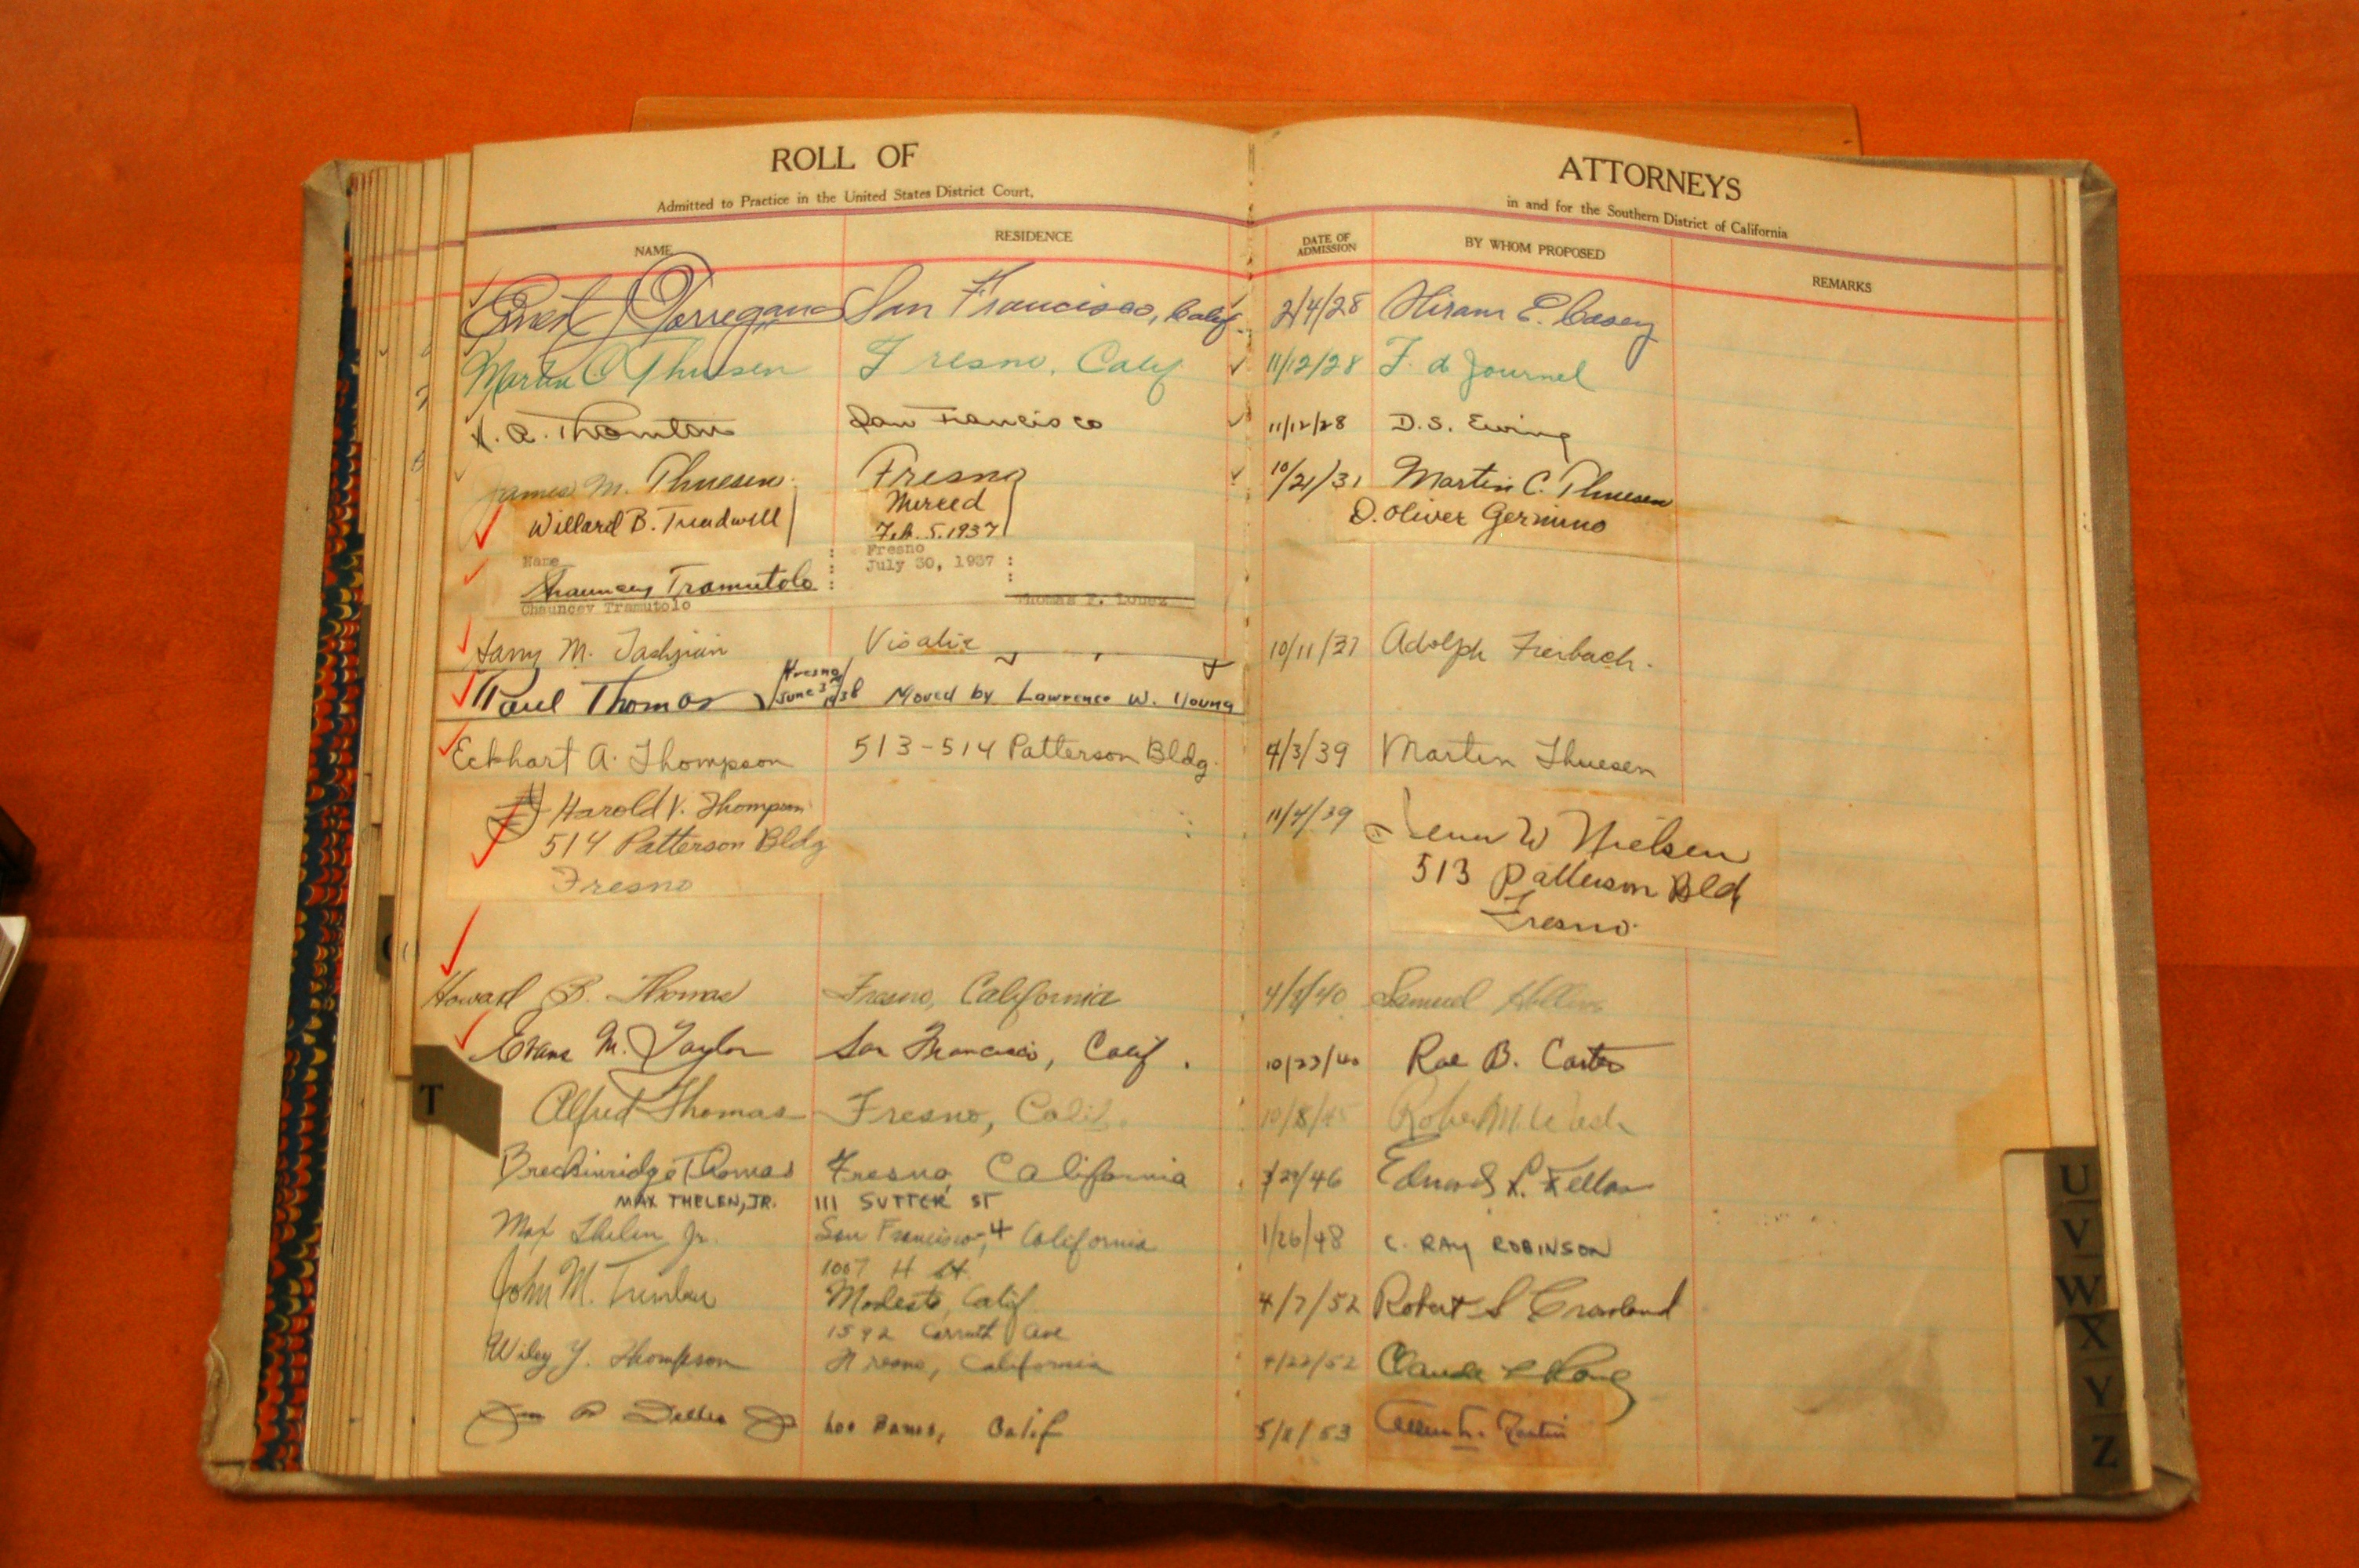 ROLL OF ATTORNEYS
Admitted to Practice in the United States District Court, in and for the Southern District of California
NAME RESIDENCE DATE OF ADMISSION BY WHOM PROPOSED REMARKS
San Francisco, Calif. 2/4/28 Hiram E. Casey
Martin C Thuesen Fresno, Calif 11/12/28 F. d Journel
A. Thornton San Francisco 11/12/28 D.S. Ewing
James M. Thuesen Fresno 10/21/31 Martin C. Thuesen
Willard B. Treadwell Merced D. Oliver Germino
Feb. 5, 1937
Name Fresno
July 30, 1937
Chauncey Tramutolo
Chauncey Tramutolo Thomas F. Lopez
Harry M. Tashjian Visalia 10/11/37 Adolph Fierbach.
Paul Thomas Fresno June 3 1938 Moved by Lawrence W. Young
Eckhart A. Thompson 513-514 Patterson Bldg. 4/3/39 Martin Thuesen
Harold V. Thompson 11/4/39 W Nielsen
514 Patterson Bldg 513 Patterson Bld
Fresno Fresno
Howard B. Thomas Fresno, California Samuel
Evans M. Taylor San Francisco, Calif. 10/23/40 Rae B. Carter
Alfred Thomas Fresno, Calif. 10/8/45
Breckinridge Thomas Fresno, California Edward L. Fellas
MAX THELEN, JR. 111 SUTTER ST
Max Thelen, Jr. San Francisco, 4 California 1/26/48 C. RAY ROBINSON
1007 H St.
John M. Modesto, Calif 4/7/52 Robert S
1592 Ave
Wiley Y. Thompson Fresno, California 4/22/52 Claude
Los Banos, Calif 5/8/53
T
U
V
W
X
Y
Z